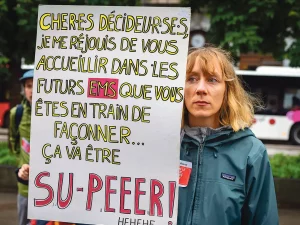 CHÈRES DÉCIDEUR·SES,
JE ME RÉJOUIS DE VOUS
ACCUEILLIR DANS LES
FUTURS EMS QUE VOUS
ÊTES EN TRAIN DE
FAÇONNER...
ÇA VA ÊTRE
SU-PEEER!
HEHEHE
patagonia